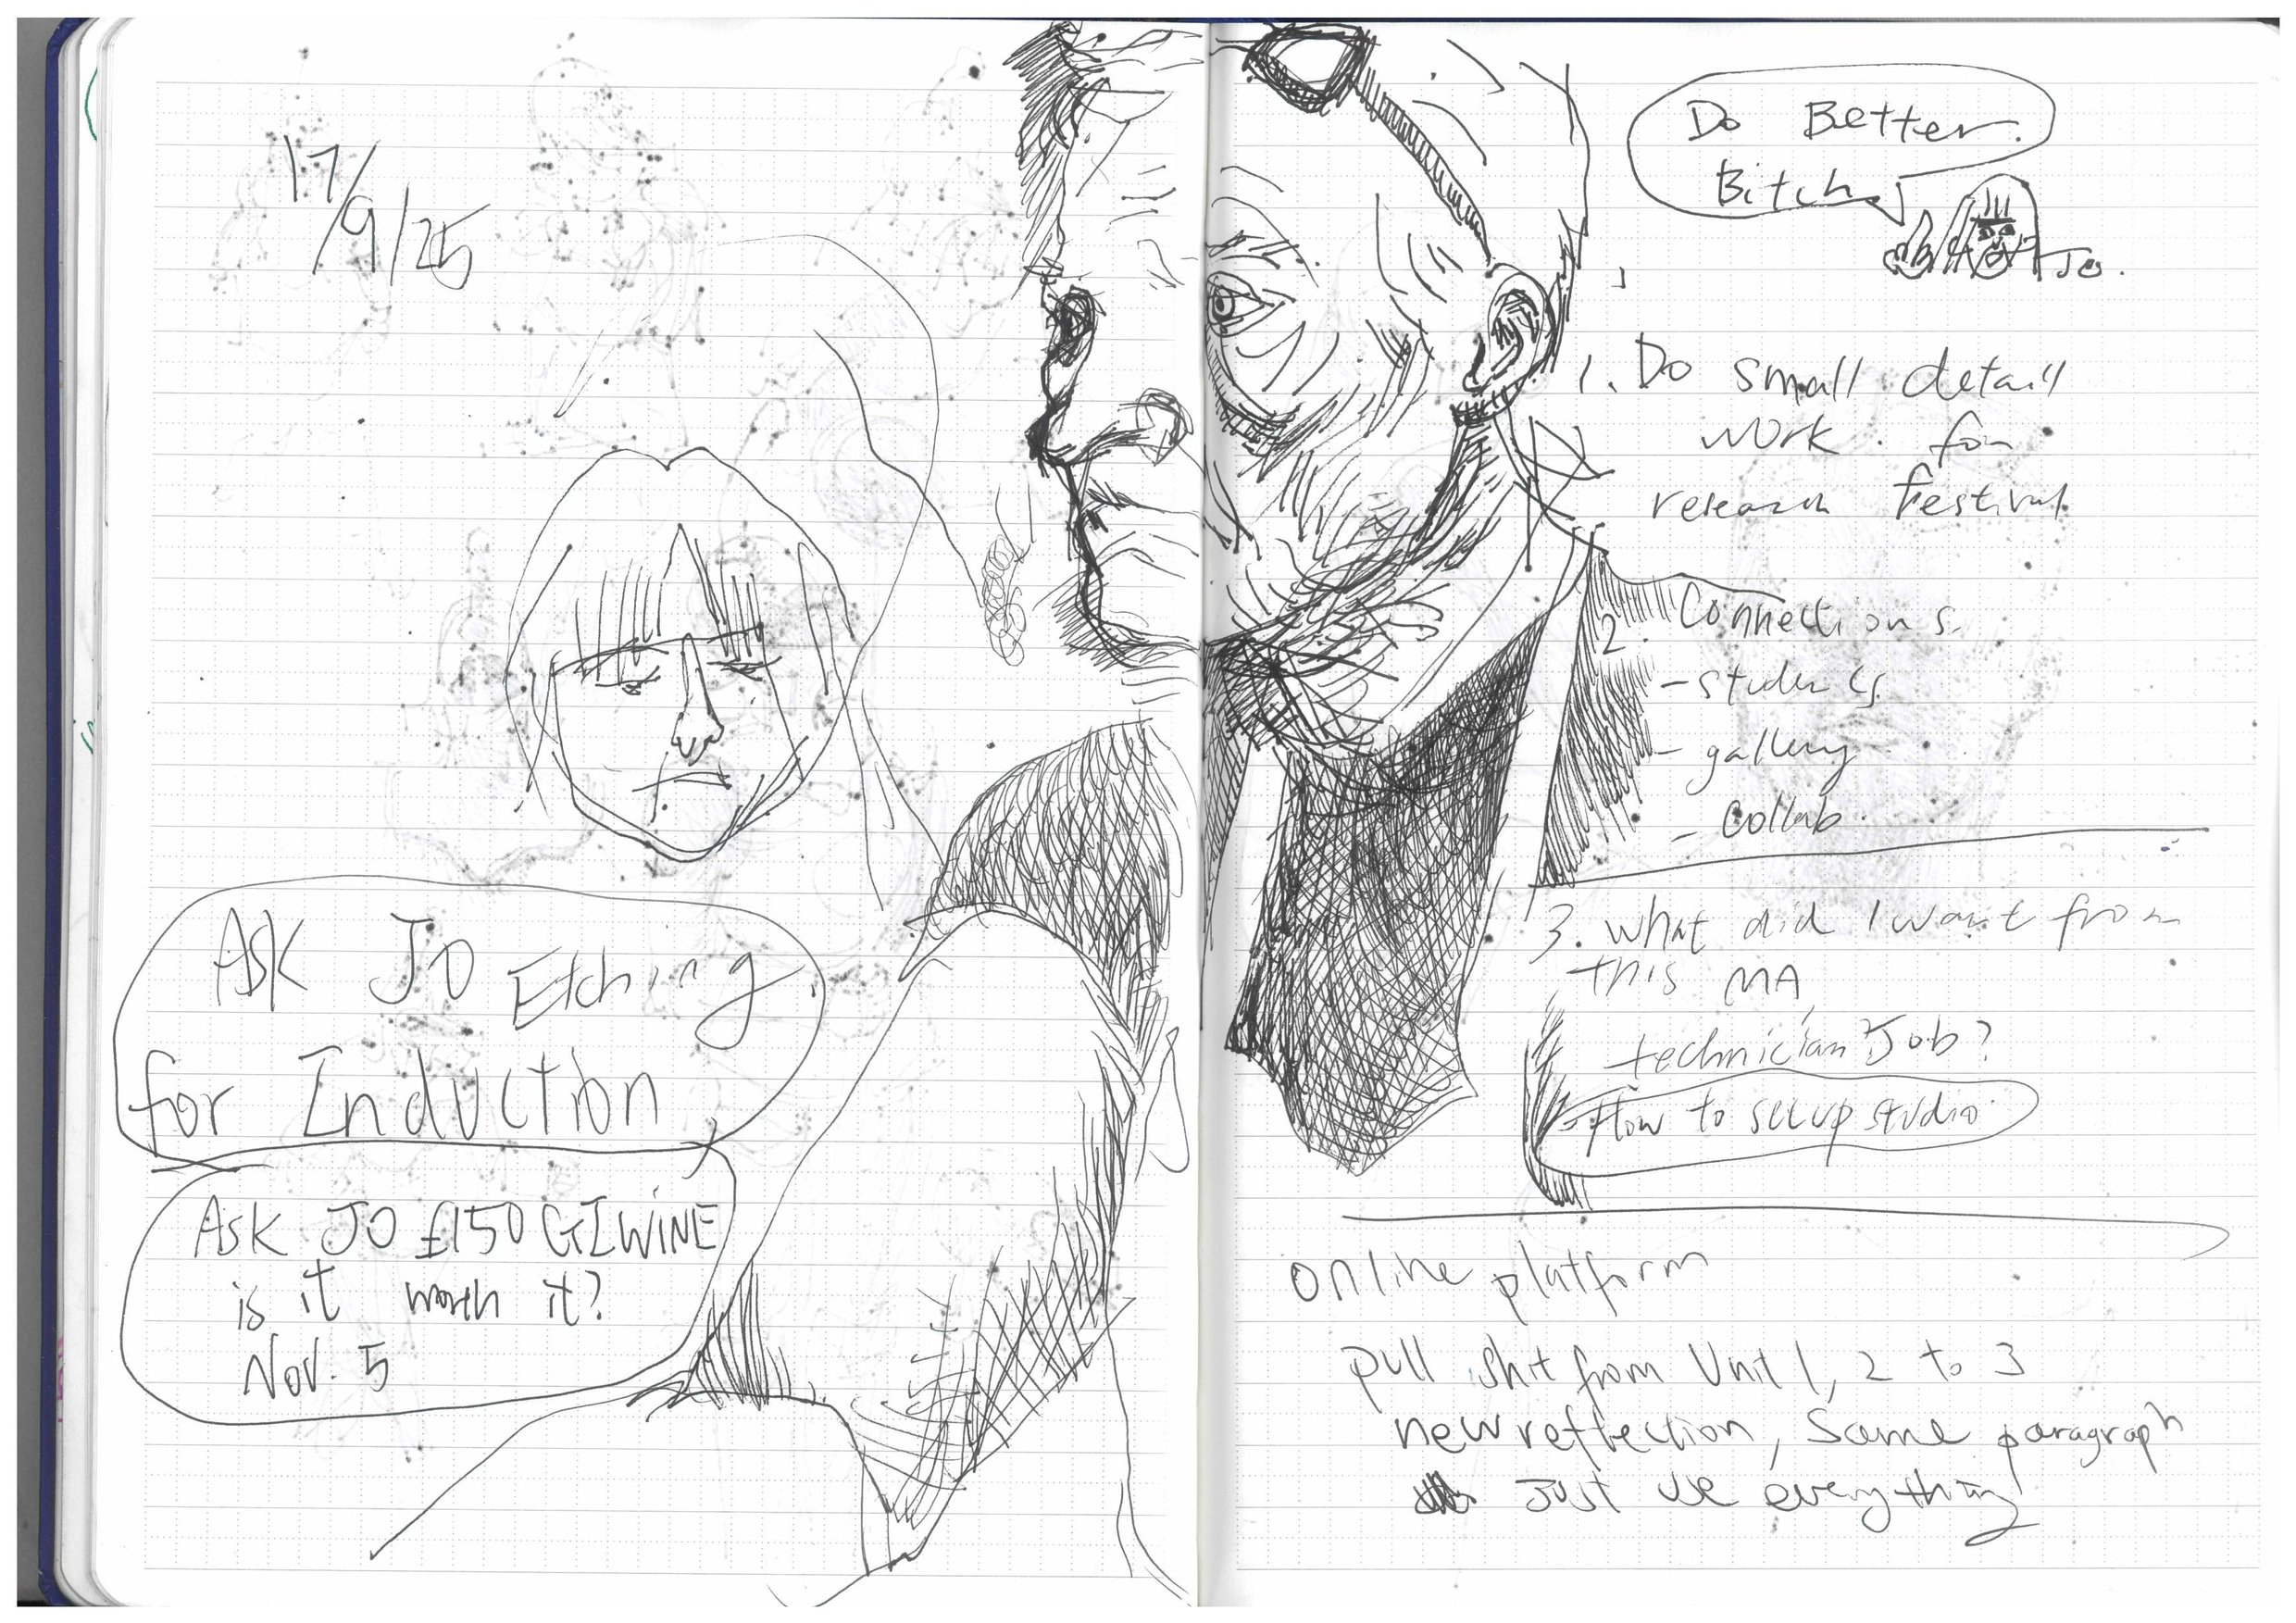 17/9/25
Ask JO Etching
for Induction
Ask JO £150 GIWINE
is it worth it?
Nov. 5
Do Better.
Bitch
Jo.
1. Do small detail
work. for
research festival
2. Connections.
- students.
- gallery
- Collab.
3. what did I want from
this MA,
technician Job?
- How to setup studio.
online platform
pull shit from Unit 1, 2 to 3
new reflection, Some paragraph
Just use everything